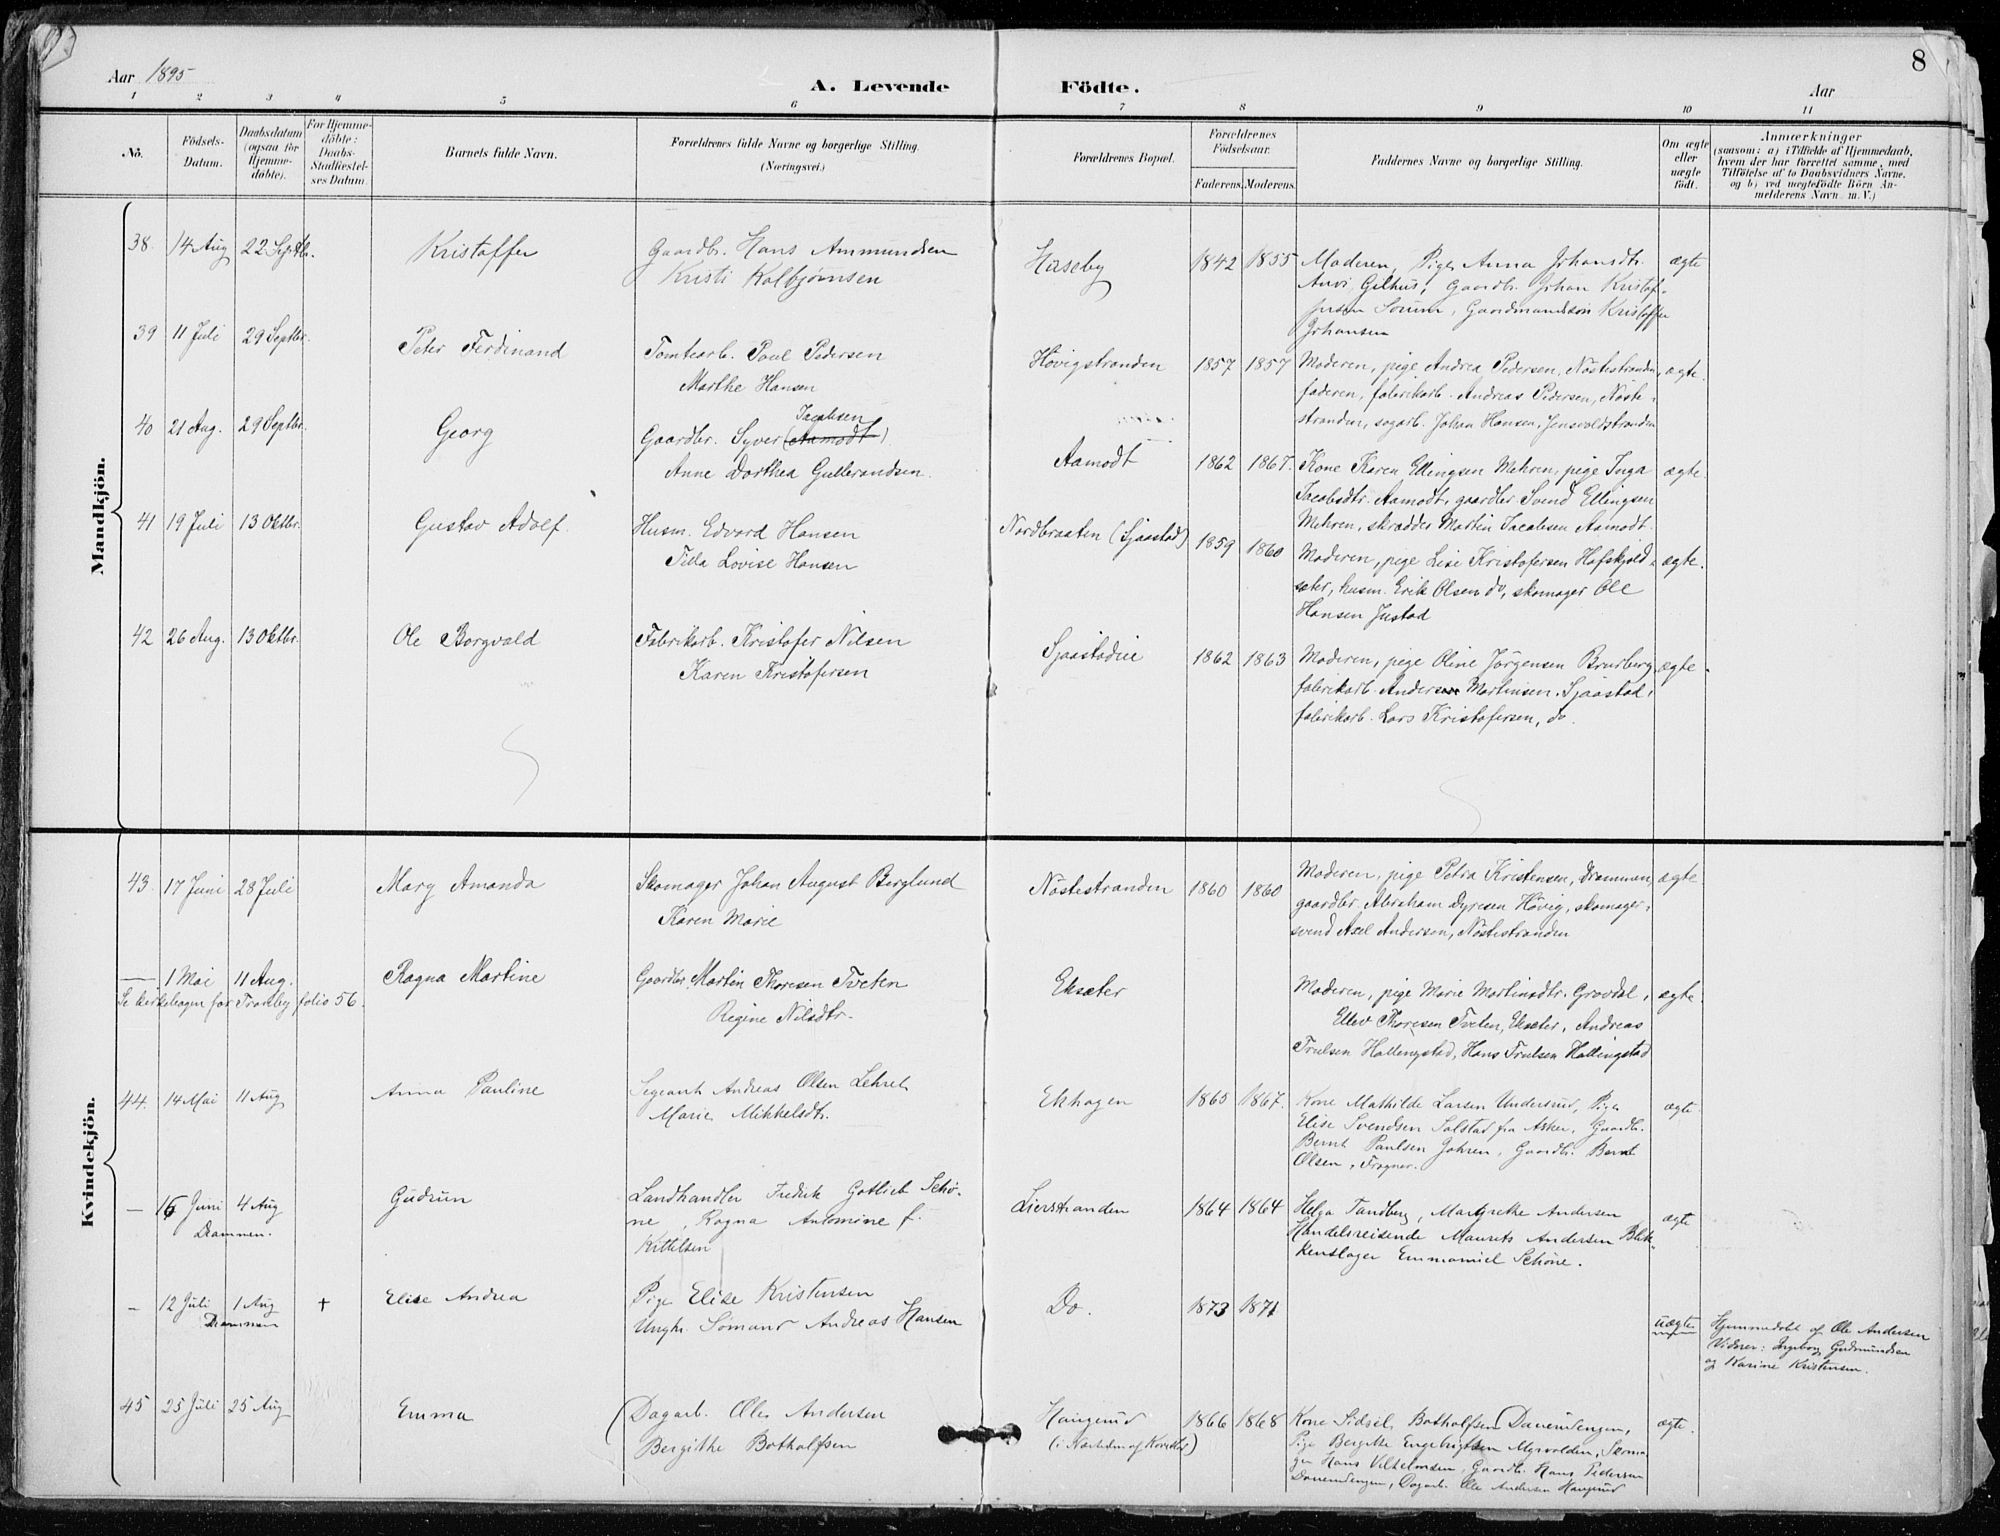 8
Aar 1895
A. Levende Födte.
Aar
1 2 3 4 5 6 7 8 9 10 11
Nö.
Födsels-Datum.
Daabsdatum (ogsaa for Hjemme-döbte).
For Hjemme-döbte: Daabs-Stadfæstel-ses Datum.
Barnets fulde Navn.
Forældrenes fulde Navne og borgerlige Stilling.
(Næringsvei.)
Forældrenes Bopæl.
Forældrenes Födselsaar.
Faderens. Moderens.
Faddernes Navne og borgerlige Stilling.
Om ægte eller uægte födt.
Anmærkninger
(saasom: a) i Tilfælde af Hjemmedaab,
hvem der har forrettet samme, med
Tilföielse af to Daabsvidners Navne.
og b) ved uægtefödte Börn An-
melderens Navn m. V.)
Mandkjön.
38. 14 Aug 22 Septbr. Kristoffer
Gaardbr. Hans Ammundsen
Kristi Kolbjørnsen
Huseby 1842 1855
Moderen, Pige Anna Johansdtr.
Gilhus, Gaardbr. Johan Kristof-
fersen Sørum, Gaardmandssøn Kristoffer
Johansen
ægte
39 11 Juli 29 Septbr. Peter Ferdinand
Tomtearb. Paul Pedersen
Marthe Hansen
Hövigstranden 1857 1857
Moderen, pige Andrea Pedersen, Nöstestranden,
faderen, fabrikarb. Andreas Pedersen, Nöste-
stranden, sagarb. Johan Hansen, Jensvoldstranden
ægte.
40 21 Aug. 29 Septbr. Georg
Jacobsen
Gaardbr. Syver (Aamodt)
Anne Dorthea Gulbrandsen.
Aamodt 1862 1867.
Kone Karen Ellingsen Mehren, pige Inga
Jacobsdtr. Aamodt, gaardbr Svend Ellingsen
Mehren, skrædder Martin Jacobsen Aamodt.
ægte.
41 19 Juli 13 Oktbr. Gustav Adolf.
Husm. Edvard Hansen
Tilda Lovise Hansen
Nordbraaten (Sjaastad) 1859 1860
Moderen, pige Lise Kristofersen Hafskjold-
sæter, husm. Erik Olsen do, skomager Ole
Hansen Justad
ægte.
42 26 Aug. 13 Oktbr. Ole Borgvald
Fabrikarb. Kristofer Nilsen
Karen Kristofersen
Sjaastadeie 1862 1863
Moderen, pige Oline Jörgensen Brurberg,
fabrikarb. Anders Martinsen, Sjaastad,
fabrikarb. Lars Kristofersen, do.
ægte.
Kvindekjön.
43. 17 Juni 28 Juli Mary Amanda
Skomager Johan August Berglund
Karen Marie
Nöstestranden 1860 1860
Moderen, pige Petra Kristensen, Drammen,
gaardbr. Abraham Dyresen Hövig, skomager-
svend Axel Andersen, Nöstestranden
ægte
— 1 Mai 11 Aug. Ragna Martine
Se kirkebogen for Tranby folio 56.
Gaardbr. Martin Thoresen Tveten
Regine Nilsdtr.
Eksæter
Moderen, pige Marie Martinsdtr. Grovdal,
Ellev Thoresen Tveten, Eksæter, Andreas
Trulsen Hallingstad, Hans Trulsen Hallingstad
ægte.
44. 14 Mai 11 Aug Anna Pauline
Sergeant Andreas Olsen Lehret
Marie Mikkelsdtr.
Ekhagen 1865 1867.
Kone Mathilde Larsen Undersrud, Pige
Elise Svendsen Solstad fra Asker, Gaardb.
Bernt Paulsen Gohren, Gaardb. Bernt
Olsen, Fragner.
ægte.
— 16 Juni 4 Aug Gudrun
Drammen.
Landhandler Fredrik Gotlieb Schö-
ne, Ragna Antomine f.
Kittelsen
Lierstranden 1864 1864
Helga Tandberg, Margrethe Andersen
Handelsreisende Maurits Andersen Blik-
kenslager Emmanuel Schöne.
ægte
— 12 Juli 1 Aug + Elise Andrea
Drammen
Pige Elise Kristensen
Ungk. Sömand Andreas Hansen
Do. 1873 1871
uægte
Hjemmedöbt af Ole Andersen
Vidner: Ingeborg Gudmundsen
og Karine Kristensen.
45 25 Juli 25 Aug Emma
Dagarb. Ole Andersen
Bergithe Botholfsen
Haugerud
1866 1868
Kone Sidsel Botholfsen Danendengen,
Pige Bergitte Engebrigtsen Myrvolden, Skoma-
ger Hans Vilhelmsen, Gaardb. Hans Pedersen
Danendengen, Dagarb. Ole Andersen Haugerud
ægte.